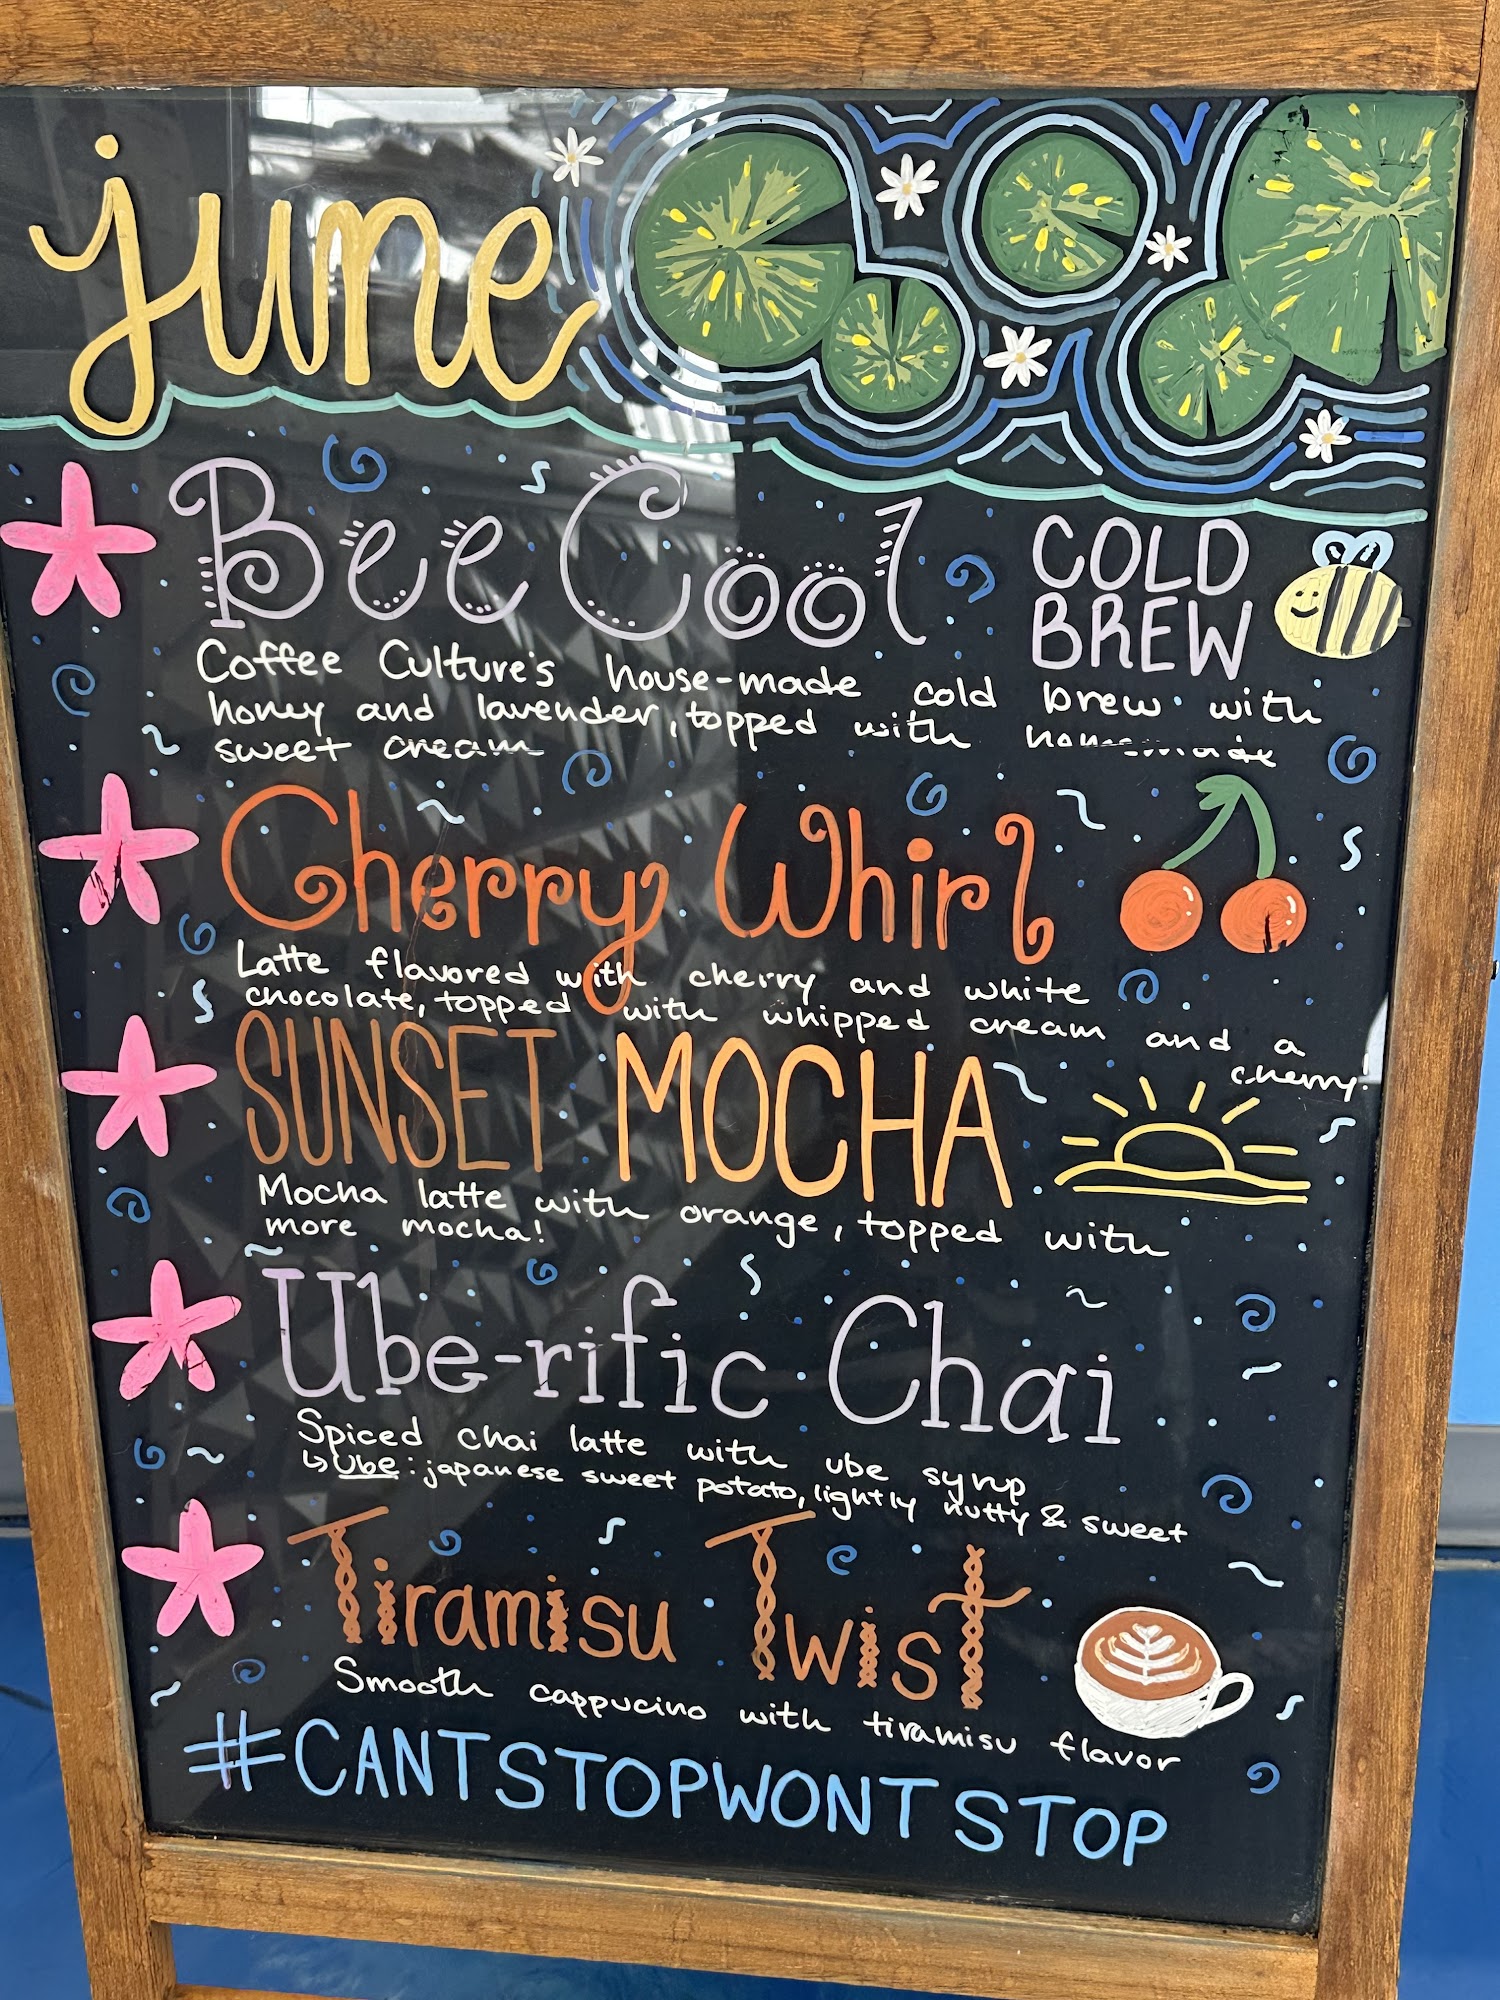 june
Bee Cool COLD
BREW
Coffee Culture's house-made cold brew with
honey and lavender, topped with homemade
sweet cream
Cherry Whirl
Latte flavored with cherry and white
chocolate, topped with whipped cream and a
cherry!
SUNSET MOCHA
Mocha latte with orange, topped with
more mocha!
Ube-rific Chai
Spiced chai latte with ube syrup
↳ Ube: japanese sweet potato, lightly nutty & sweet
Tiramisu Twist
Smooth cappucino with tiramisu flavor
#CANTSTOPWONTSTOP